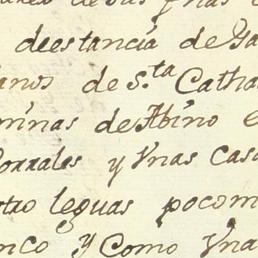 deestancia de Ga
anos de S.ta Catha
minas de Abino e
Corrales y Vnas Cas
tro leguas pocom
nco y Como Vna